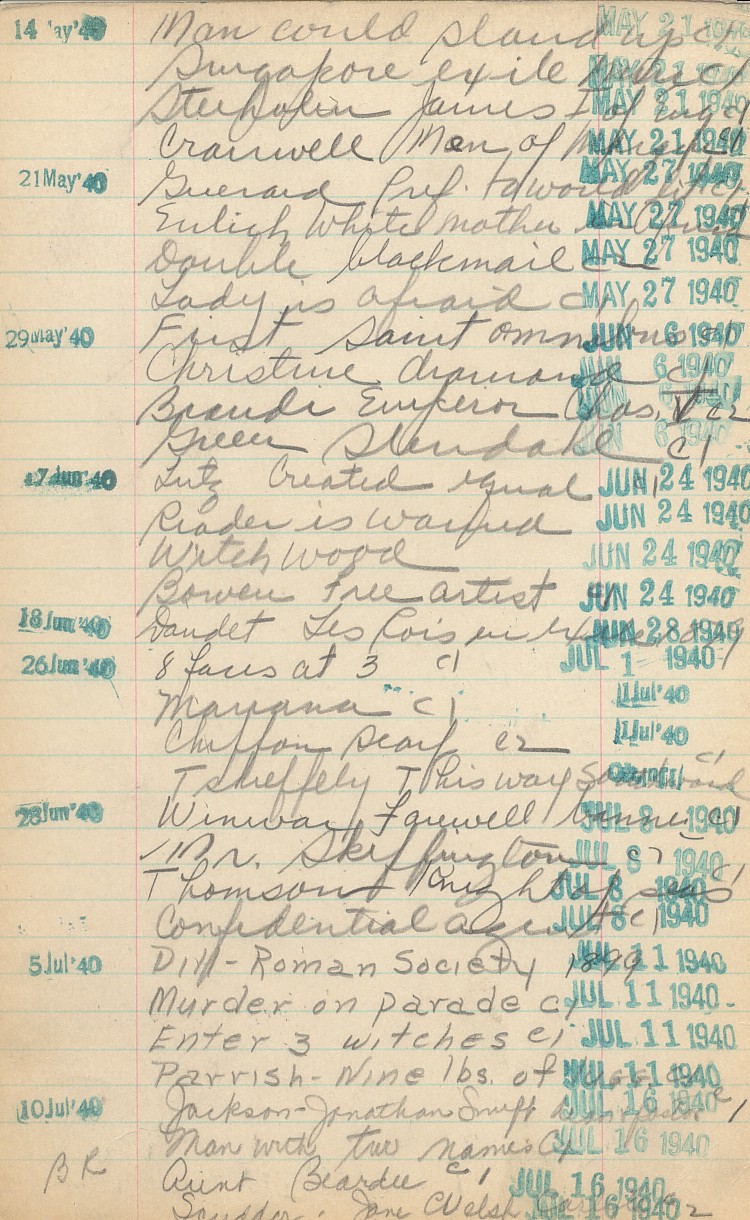 14 May '40 Man could stand up c1 MAY 21 1940
Singapore exile c1 MAY 21 1940
Steeholm James I of Eng c1 MAY 21 1940
Cranwell Men of MAY 21 1940
21 May '40 Guerard Pref. to world lit c1 MAY 27 1940
Enlich White mother in MAY 27 1940
Double blackmail c2 MAY 27 1940
Lady is afraid c1 MAY 27 1940
29 May '40 First Saint omnibus c1 JUN 6 1940
Christine diamond c1 JUN 6 1940
Brandi Emperor Chas. V c2 JUN 6 1940
Green Stendahl c1 JUN 6 1940
17 Jun '40 Lutz Created equal c1 JUN 24 1940
Reader is warned JUN 24 1940
Witch wood JUN 24 1940
Bowen Free artist c1 JUN 24 1940
18 Jun '40 Daudet Les Rois en JUN 28 1940
26 Jun '40 8 faces at 3 c1 JUL 1 1940
Mariana c1 1 Jul '40
Chiffon scarf c2 1 Jul '40
Tschiffely This way Southward c1
28 Jun '40 Winwar Farewell banner c1 JUL 8 1940
Mr. Skeffington c7 JUL 8 1940
Thomson Knights of spurs c1 JUL 8 1940
Confidential agent c1 JUL 8 1940
5 Jul '40 Dill - Roman Society 1899 JUL 11 1940
Murder on parade c1 JUL 11 1940
Enter 3 witches c1 JUL 11 1940
Parrish - Nine lbs. of JUL 11 1940
10 Jul '40 Jackson - Jonathan Swift dean + pastor c1 JUL 16 1940
Man with two names c1 JUL 16 1940
BR Aunt Beardie c1 JUL 16 1940
Scudder. Jane Welsh Carlyle c2 JUL 16 1940